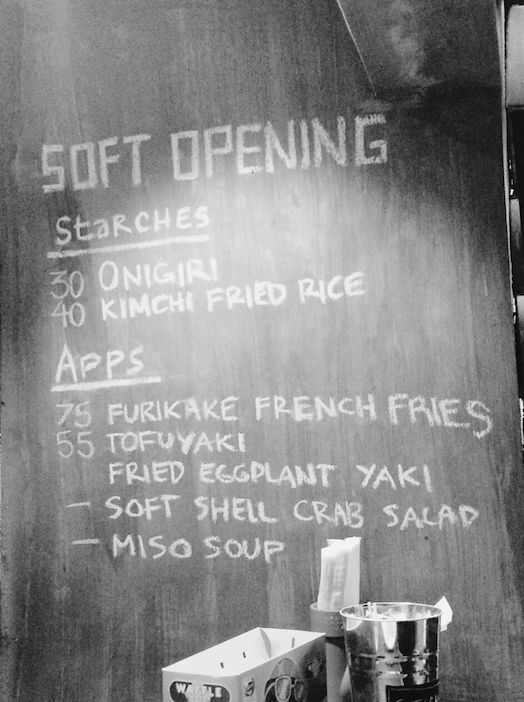 SOFT OPENING
STARCHES
30 ONIGIRI
40 KIMCHI FRIED RICE
APPS
75 FURIKAKE FRENCH FRIES
55 TOFUYAKI
FRIED EGGPLANT YAKI
— SOFT SHELL CRAB SALAD
— MISO SOUP